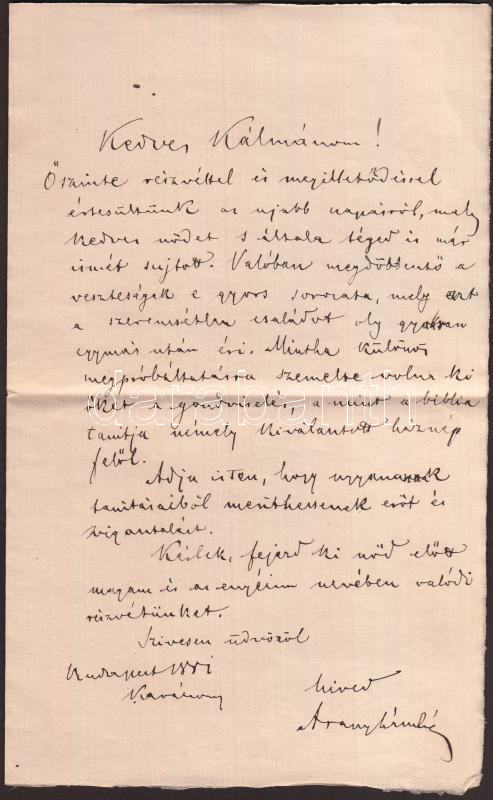 Kedves Kálmánom!
Őszinte részvéttel és megilletődéssel
értesültünk az ujabb csapásról, mely
kedves nődet s általa téged is már
ismét sujtott. Valóban megdöbbentő a
veszteségek e gyors sorozata, mely ezt
a szerencsétlen családot oly gyakran
egymás után éri. Mintha különös
megpróbáltatásra szemelte volna ki
őket a gondviselés, a mint a biblia
tanitja némely kiválasztott
felől.
Adja isten, hogy ugyanannak
tanitásaiból merithessenek erőt és
vigasztalást.
Kérlek, fejezd ki nőd előtt
magam és az enyéim nevében valódi
részvétünket.
Szivesen üdvözöl
Budapest 1881
hived
Karácsony
Arany László
darabanth